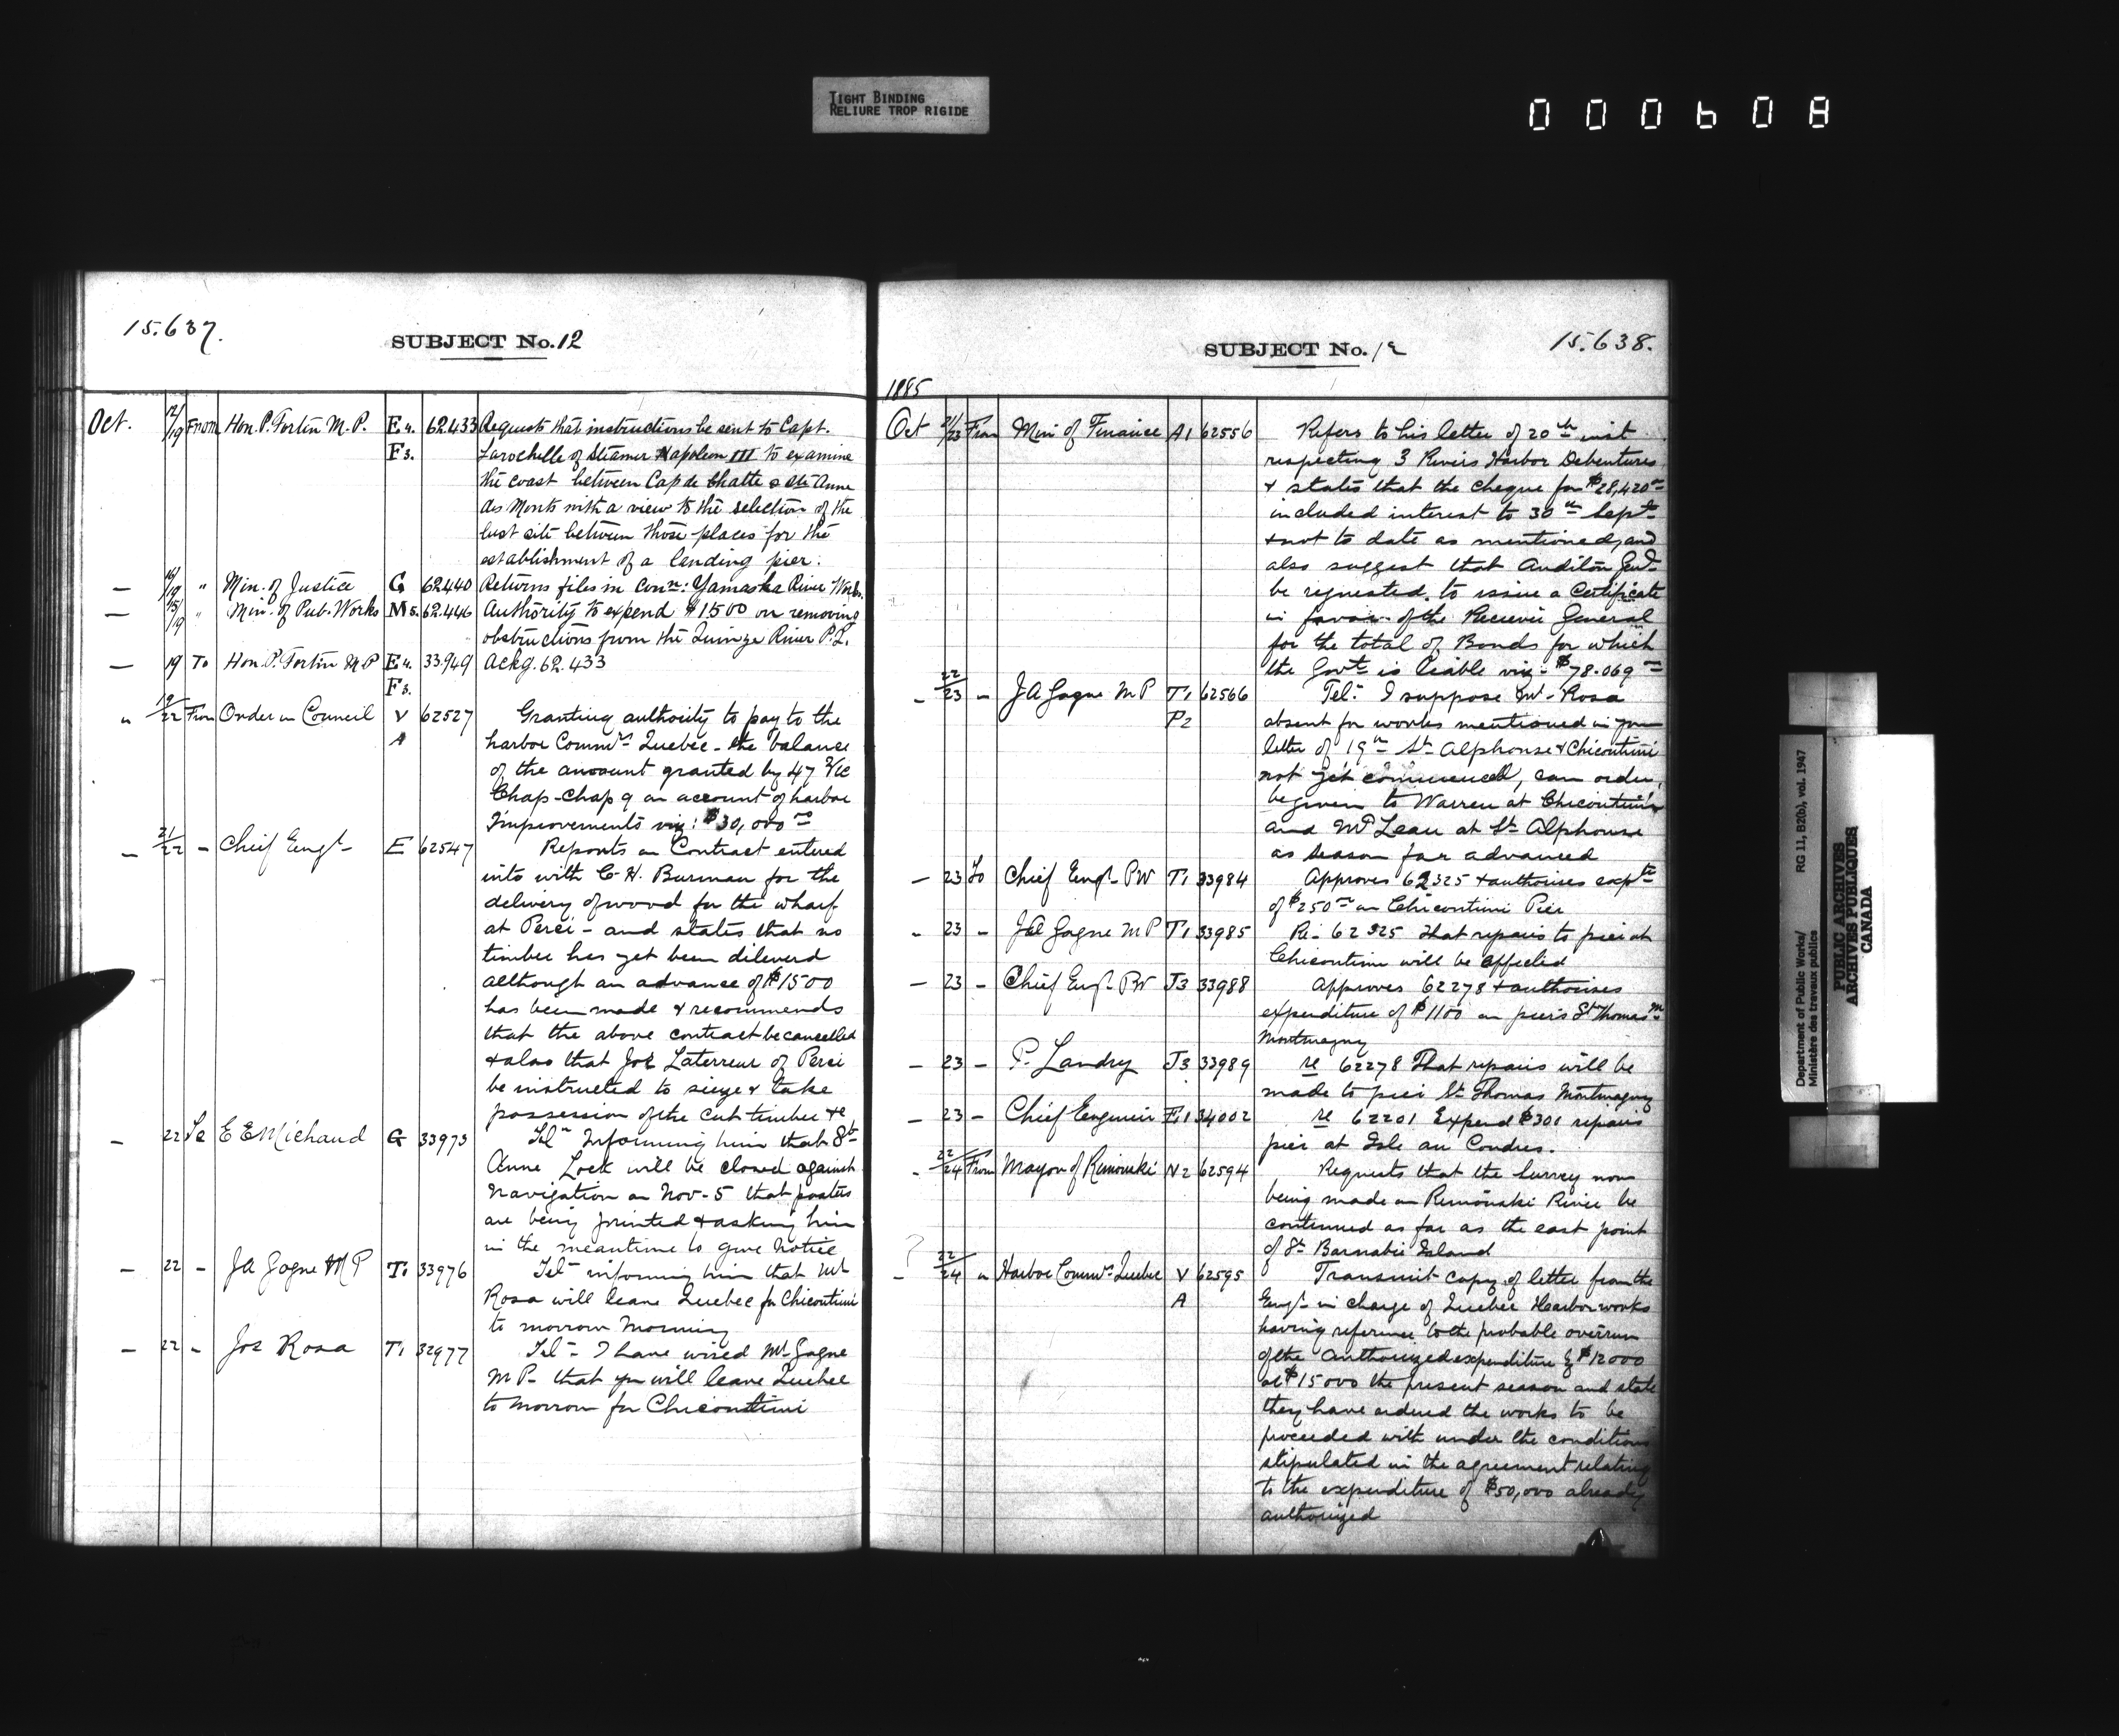 TIGHT BINDING
RELIURE TROP RIGIDE
000608
15.637.
SUBJECT No. 12
Oct. 12/19 From Hon. P. Fortin M.P. E4. 62.433 Requests that instructions be sent to Capt.
F3. Larochelle of Steamer Napoleon III to examine
the coast between Cap de Chatte & Ste Anne
des Monts with a view to the selection of the
best site between those places for the
establishment of a landing pier.
— 16/19 " Min. of Justice G 62.440 Returns files in Conn: Yamaska River Works.
— 15/19 " Min. of Pub. Works M5. 62.446 Authority to expend $1500 on removing
obstructions from the Quinze River P.Q.
— 19 To Hon. P. Fortin M.P E4. 33.949 Ackg. 62.433
F3.
" 19/22 From Order in Council V 62527 Granting authority to pay to the
A harbor Commrs Quebec - the balance
of the amount granted by 47 Vic
Chap - Chap 9 on account of harbor
Improvements viz: $30,000 00
— 21/22 - Chief Engr E 62547 Reports on Contract entered
into with C. H. Burman for the
delivery of wood for the wharf
at Percé - and states that no
timber has yet been dilevered
although an advance of $1500
has been made & recommends
that the above contract be cancelled
& also that Joe Laterreur of Percé
be instructed to sieze & take
possession of the cut timber &c
- 22 To E E Michaud G 33973 Teln Informing him that St
Anne Lock will be closed against
Navigation on Nov - 5 that posters
are being printed & asking him
in the meantime to give notice
— 22 - J A Gagne M P T1 33976 Teln informing him that Mr
Rosa will leave Quebec for Chicoutimi
to morrow morning
— 22 - Jos Rosa T1 33977 Tel - I have wired Mr Gagne
M P - that you will leave Quebec
to morrow for Chicoutimi
SUBJECT No. 12
15.638.
1885
Oct 21/23 From Min of Finance A1 62556 Refers to his letter of 20th inst
respecting 3 Rivers Harbor Debentures
& states that the cheque for $28,420 00
included interest to 30th Sept
& not to date as mentioned, and
also suggest that Auditor Genl
be requested to issue a Certificate
in favor of the Receiver General
for the total of Bonds for which
the Govt is liable viz - $78.069 00
- 22/23 - J A Gagne M P T1 62566 Tel - I suppose Mr Rosa
P2 absent for works mentioned in your
letter of 19th St Alphonse & Chicoutimi
not yet commenced, can order
be given to Warren at Chicoutimi
and McLean at St Alphonse
as season far advanced
— 23 To Chief Engr PW T1 33984 Approves 62325 & authorises expte
of $250 00 on Chicoutimi Pier
- 23 - J A Gagne M P T1 33985 Re - 62325 that repairs to pier at
Chicoutimi will be effected
— 23 - Chief Engr PW J3 33988 Approves 62278 & authorises
expenditure of $1100 on piers St Thomas
Montmagny
— 23 - P. Landry J3 33989 re 62278 That repairs will be
made to pier St Thomas Montmagny
- 23 - Chief Engineer E1 34002 re 62201 Expend $300 repairs
pier at Isle au Coudres.
- 22/24 From Mayor of Rimouski N2 62594 Requests that the Survey now
being made on Rimouski River be
continued as far as the east point
of St Barnabie Island
?
- 22/24 " Harbor Commrs Quebec V 62595 Transmit copy of letter from the
A Engr in charge of Quebec Harbor works
having reference to the probable overrun
of the authorized expenditure by $12000
or $15000 the present season and state
they have ordered the works to be
proceeded with under the conditions
stipulated in the agreement relating
to the expenditure of $50,000 already
authorized
Department of Public Works/ RG 11, B2(b), vol. 1947
Ministère des travaux publics
PUBLIC ARCHIVES
ARCHIVES PUBLIQUES
CANADA